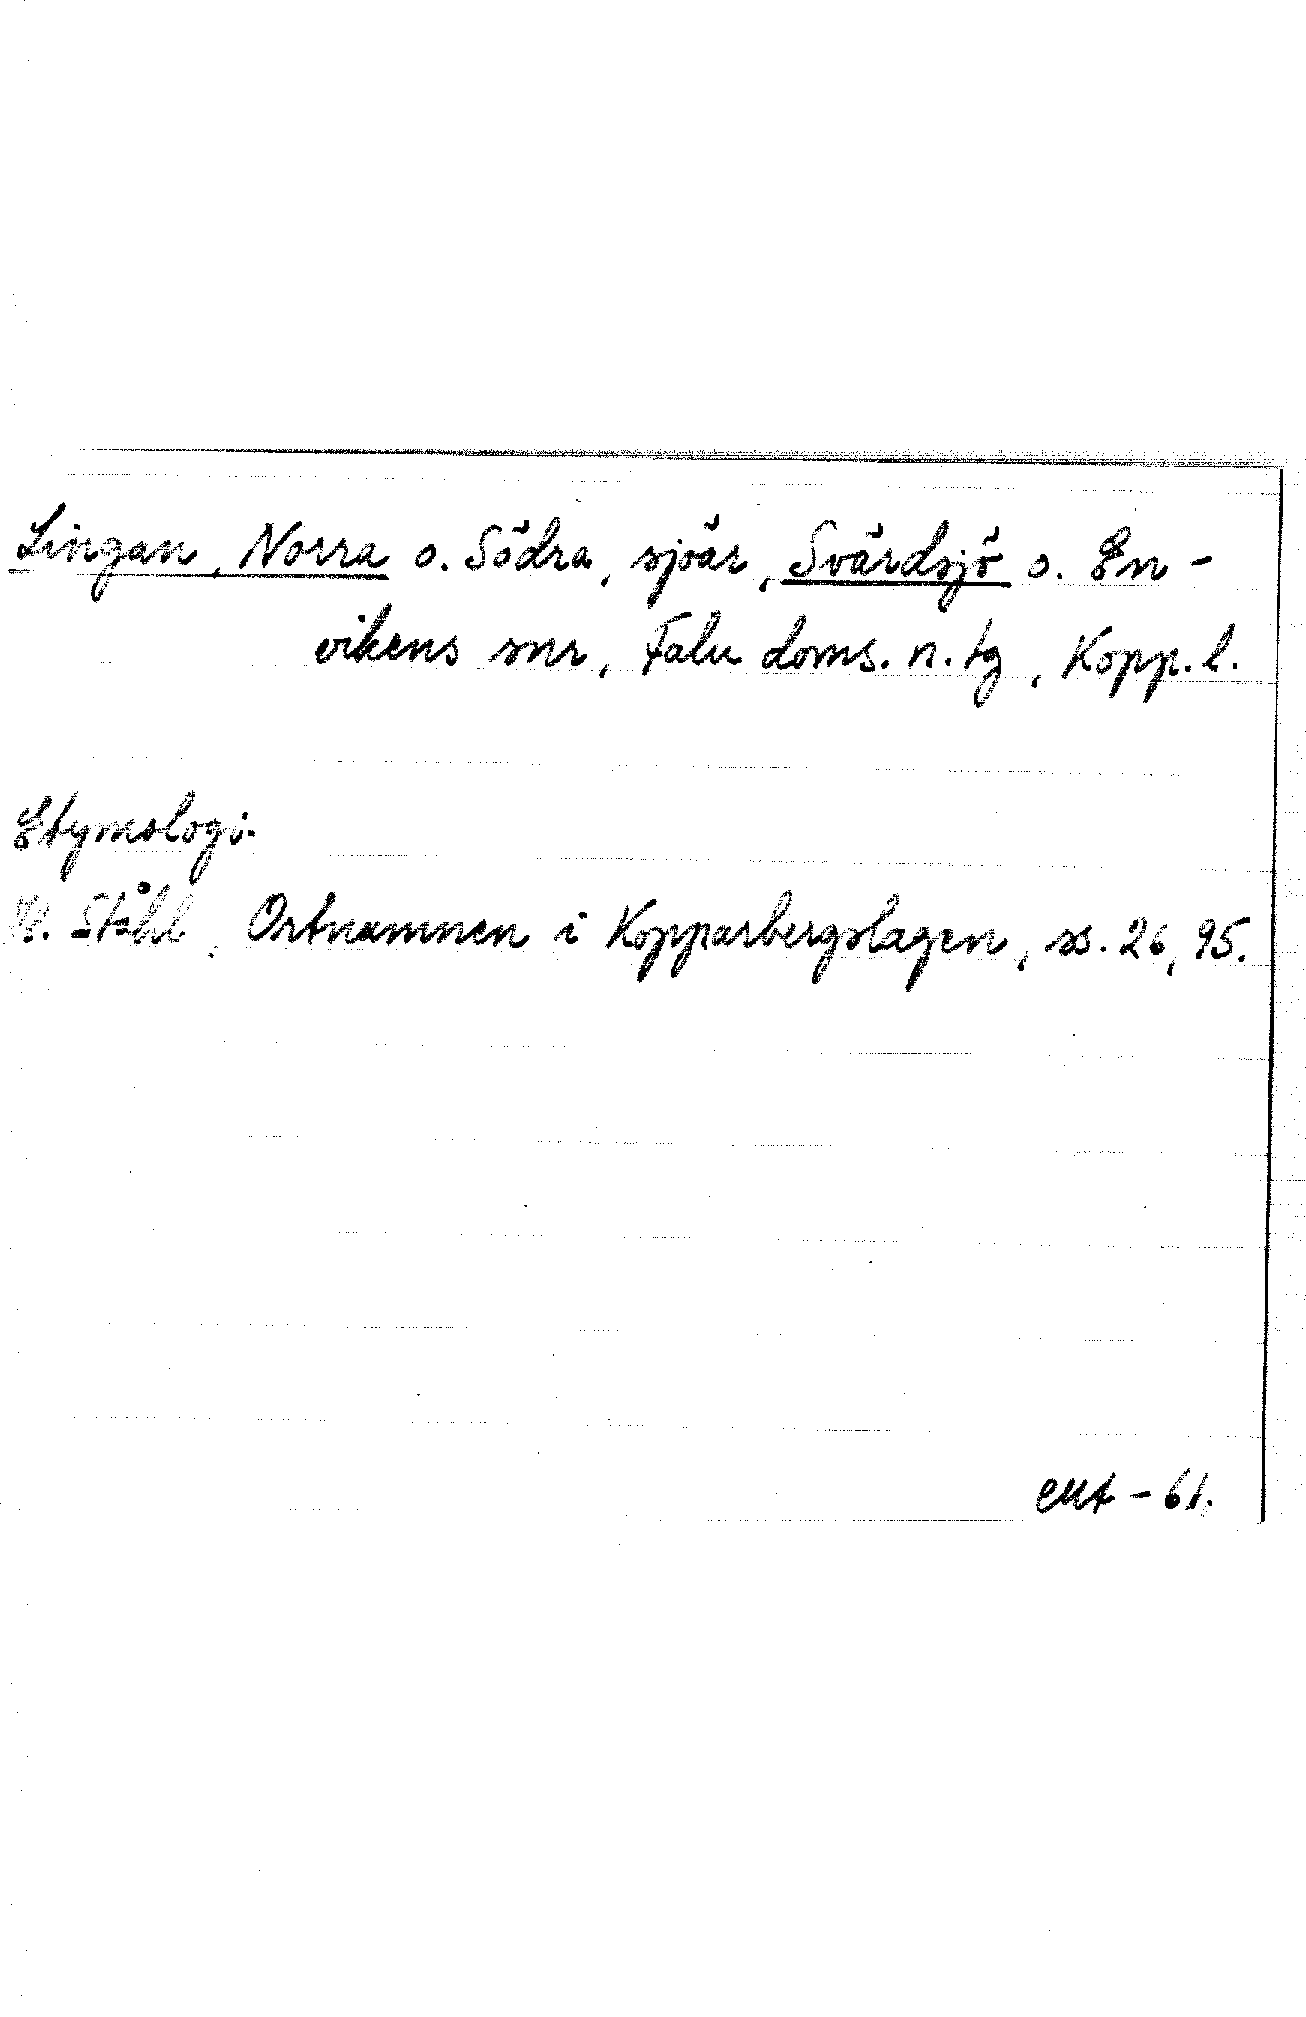 Lingan, Norra o. Södra, sjöar, Svärdsjö o. En-
vikens snr, Falu doms. n. tg, Kopp. l.
Etymologi.
H. Ståhl, Ortnamnen i Kopparbergslagen, ss. 26, 95.
EMt - 61.